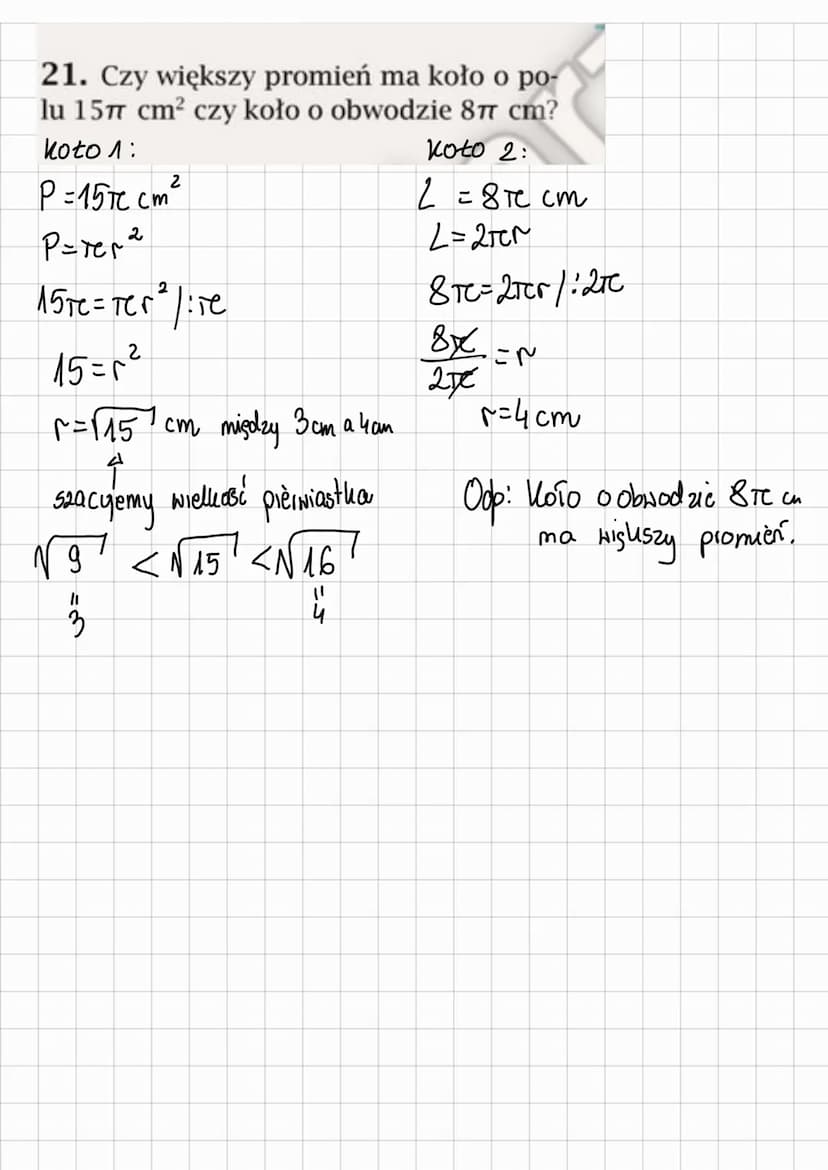 21. Czy większy promień ma koło o po-
lu 15π cm² czy koło o obwodzie 8π cm?
Koło 1:
P=15π cm²
P=πr²
15π=πr² /:π
15=r²
r=√15 cm między 3cm a 4cm
szacujemy wielkość pierwiastka
√9 < √15 < √16
= =
3 4
Koło 2:
L = 8π cm
L=2πr
8π=2πr /:2π
8π/2π = r
r=4cm
Odp: Koło o obwodzie 8π cm
ma większy promień.